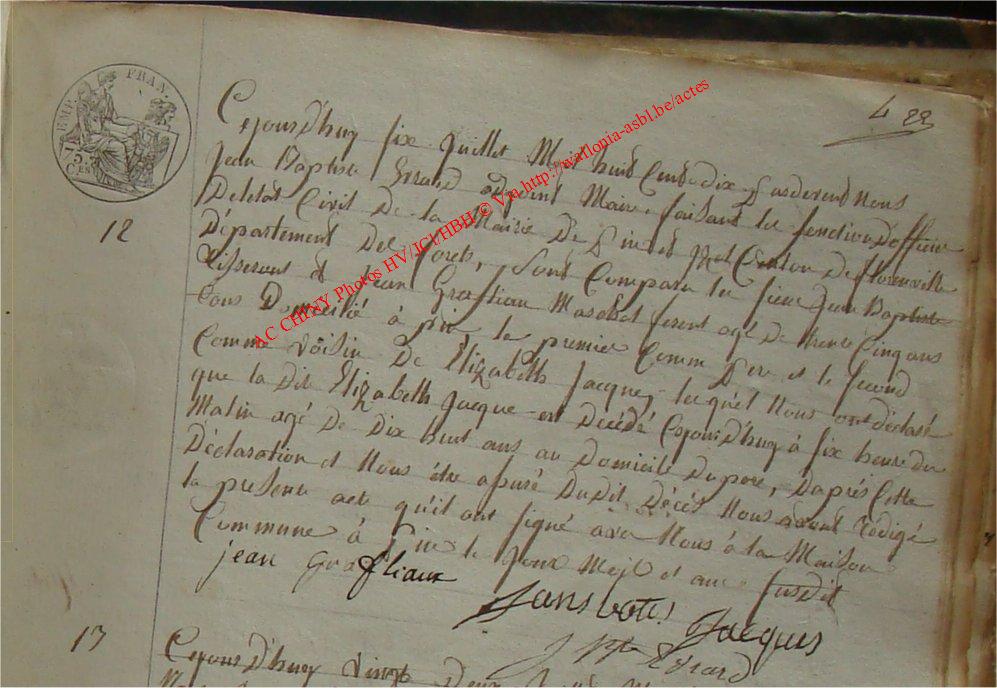 EMP. FRAN.
75
CES
4 22
12
Cejourd'huy six Juillet Mil huit Cent dix pardevend Nous
Jean Baptiste Evrard adjoint Maire faisant les fonction D'officier
Deletat Civil De la Mairie De Canton De florenville
Département Des forets, sont Comparu les sieur Jean Baptiste
Tisserant et Jean Graffiaux Marchal ferent agé De trente Cinq ans
tous Domicilié à pin le premier Comm Pere et le second
Comme Voisin De Elizabeth Jacques lesquel Nous ont déclaré
que la Dit Elizabeth Jacque est Décédé Cejourd'huy à six heure Du
Matin agé De Dix huit ans au Domicile Du pere, D'aprés Cette
Déclaration et Nous être assuré Dudit Décés Nous avons rédigé
la presente acte qu'il ont signé avec Nous à la Maison
Commune à Pin le jour Mois et an susdit
jean Graffiaux
Jansbotes Jacques
J Bte Evrard
13
Cejourd'huy Vingt Deux
AC CHINY Photos HV/JCl/HBH © Via http://wallonia-asbl.be/actes